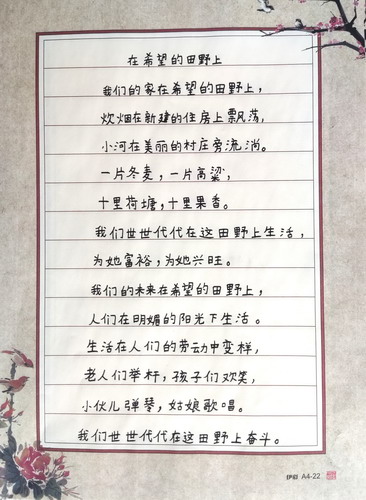 在希望的田野上
我们的家在希望的田野上，
炊烟在新建的住房上飘荡，
小河在美丽的村庄旁流淌。
一片冬麦，一片高粱，
十里荷塘，十里果香。
我们世世代代在这田野上生活，
为她富裕，为她兴旺。
我们的未来在希望的田野上，
人们在明媚的阳光下生活。
生活在人们的劳动中变样，
老人们举杆，孩子们欢笑，
小伙儿弹琴，姑娘歌唱。
我们世世代代在这田野上奋斗。
伊彩 A4-22